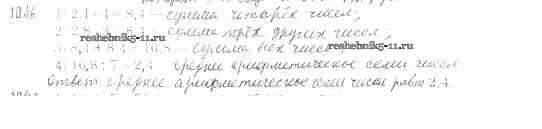 1046. 1) 2,1 · 4 = 8,4 – сумма четырёх чисел;
2) 2,8 · 3 = 8,4 сумма трёх других чисел;
reshebnik5-11.ru
3) 8,4 + 8,4 = 16,8 – сумма всех чисел;
reshebnik5-11.ru
4) 16,8 : 7 = 2,4 – среднее арифметическое семи чисел
Ответ: среднее арифметическое семи чисел равно 2,4.